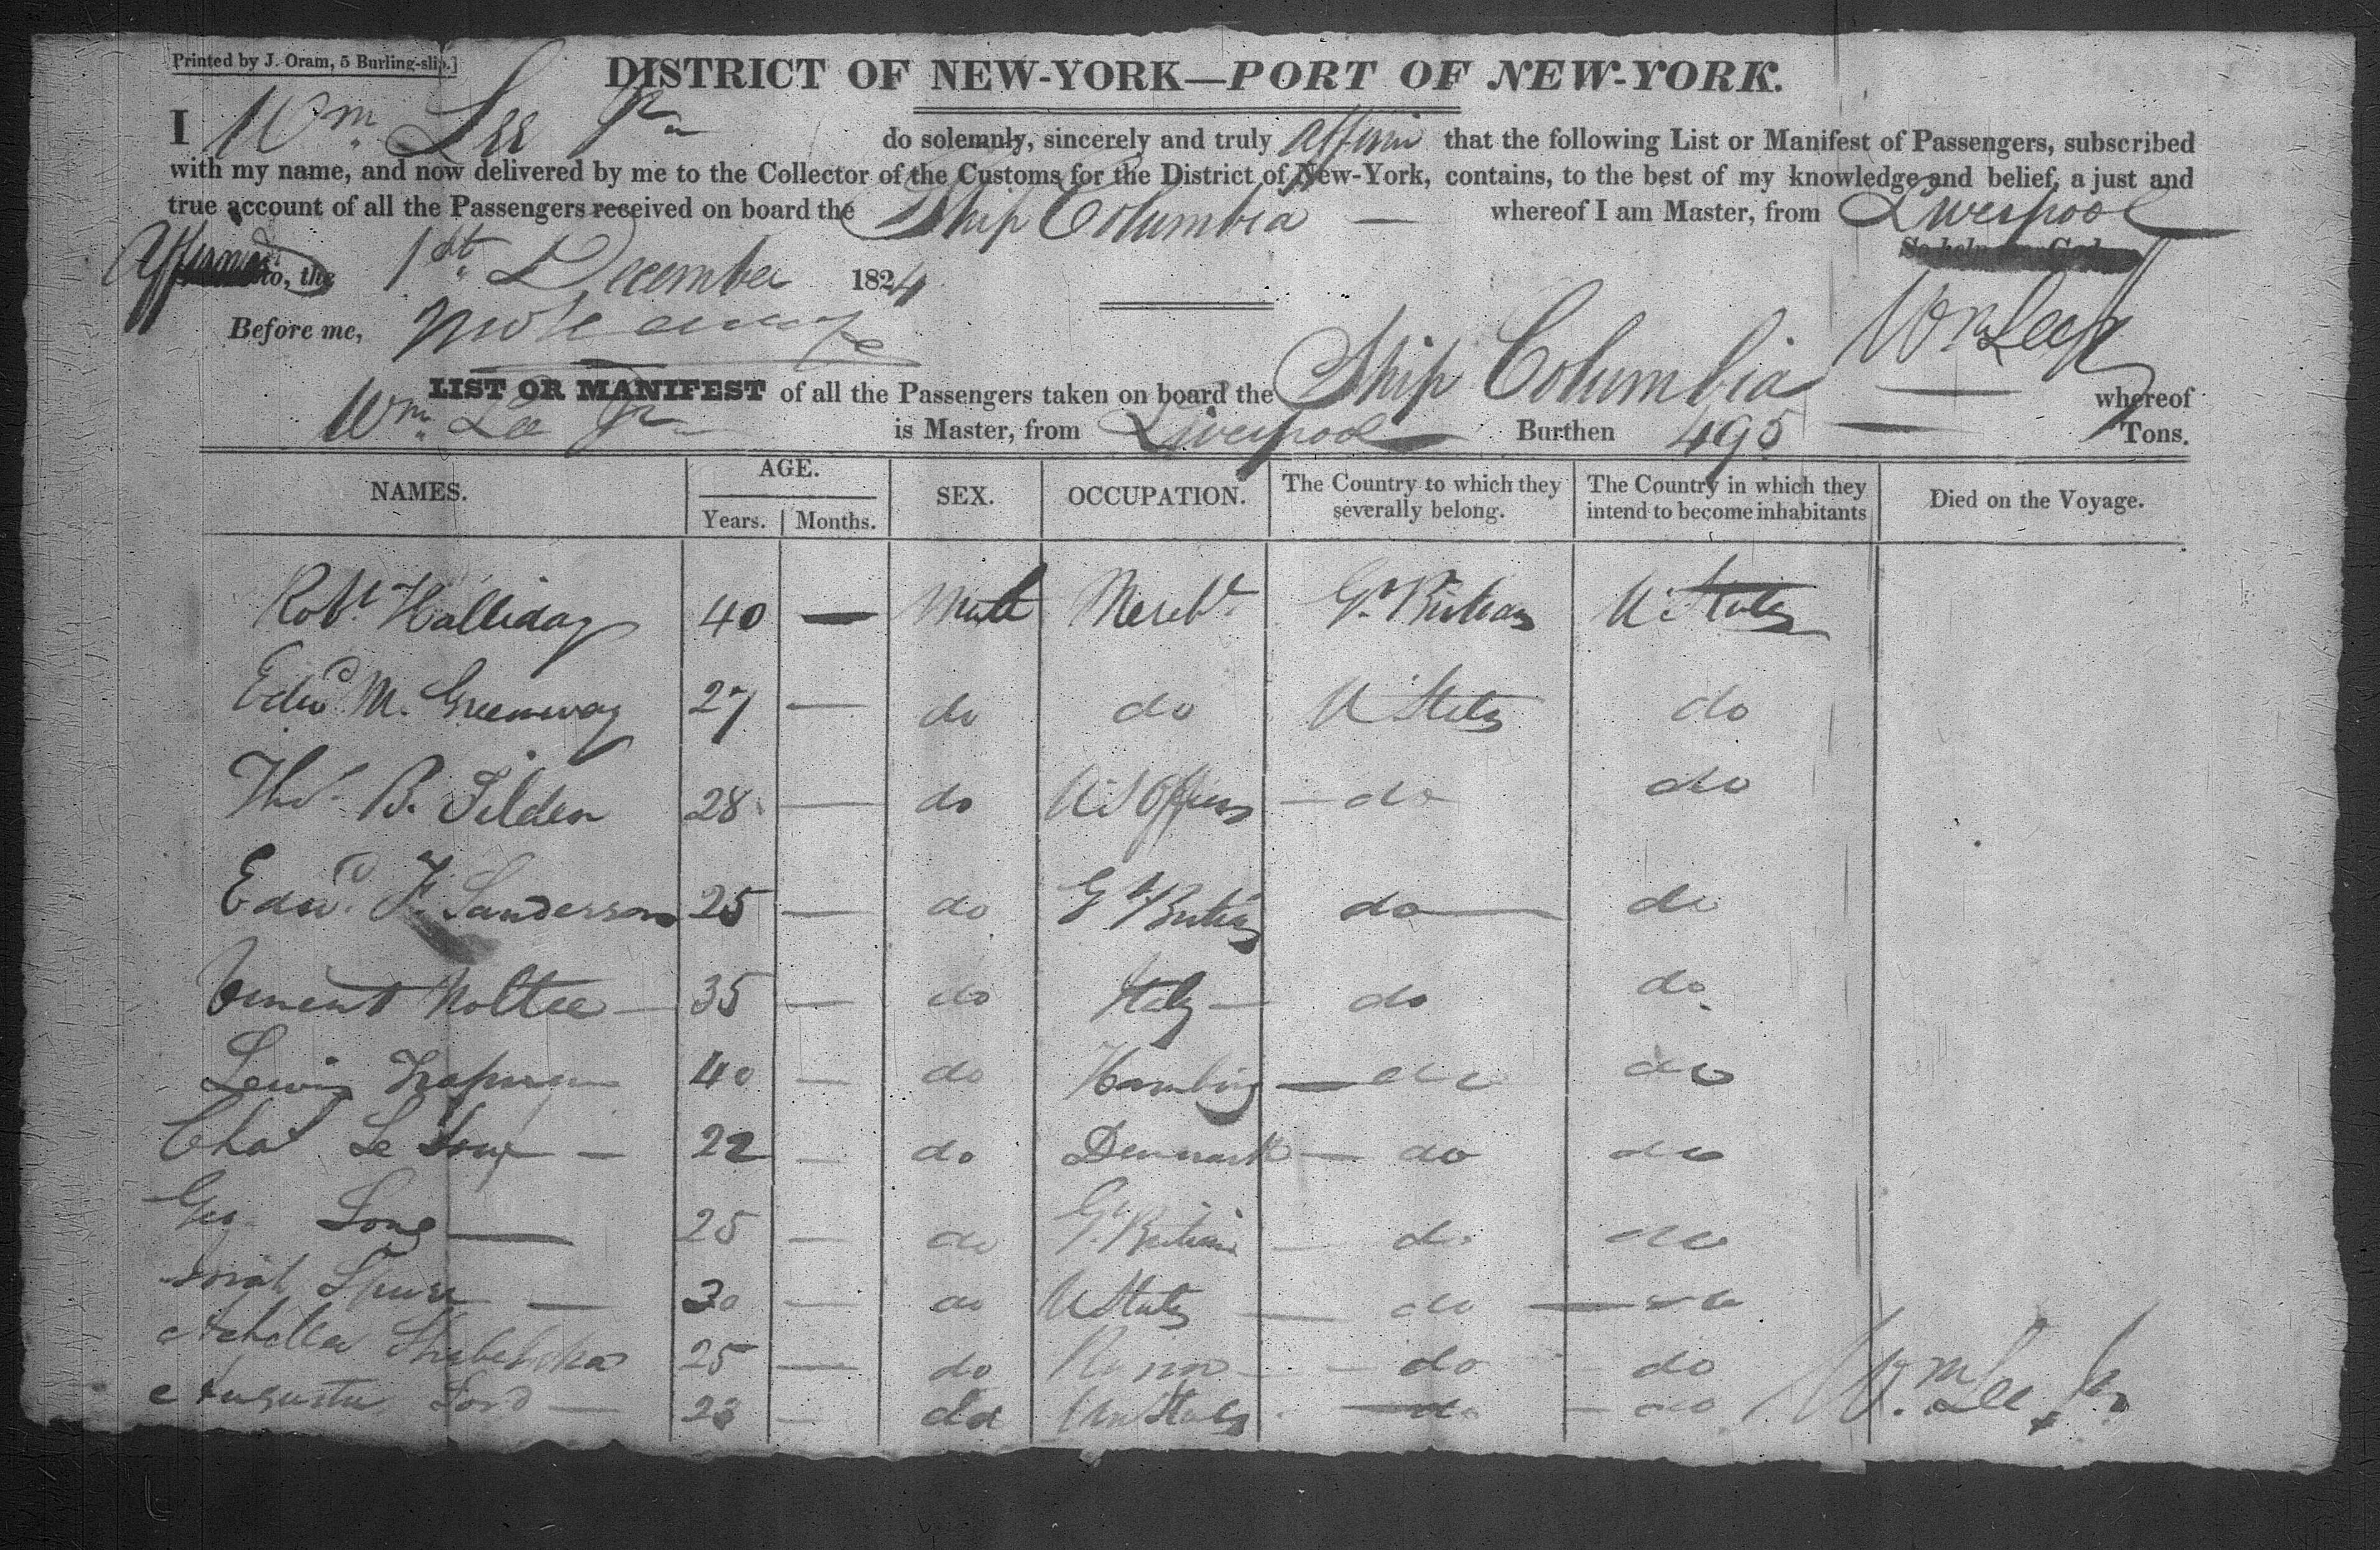 Printed by J. Oram, 5 Burling-slip.]
DISTRICT OF NEW-YORK—PORT OF NEW-YORK.
I Wm. Lee Jr do solemnly, sincerely and truly affirm that the following List or Manifest of Passengers, subscribed
with my name, and now delivered by me to the Collector of the Customs for the District of New-York, contains, to the best of my knowledge and belief, a just and
true account of all the Passengers received on board the Ship Columbia — whereof I am Master, from Liverpool
So help me God.
Affirmed to, the 1st December 1824
Before me,
Wm Lee Jr
LIST OR MANIFEST of all the Passengers taken on board the Ship Columbia — whereof
Wm. Lee Jr is Master, from Liverpool Burthen 495 — Tons.
NAMES. AGE. Years. Months. SEX. OCCUPATION. The Country to which they severally belong. The Country in which they intend to become inhabitants Died on the Voyage.
Robt. Halliday 40 — Male Mercht. Gt. Britain U. States
Edwd. M. Greenway 27 — do do U States do
Thos. B. Tilden 28 — do U S Officer — do do
Edwd. F. Sanderson 25 — do Gt Britain do — do
Vincent Noltee — 35 — do Italy — do do
Lewis 40 — do Hamburg — do do
Chas Le — 22 — do Denmark — do do
Geo. Long — 25 — do Gt. Britain — do do
30 — do U States — do — do
25 — do — do — do
Augustus Ford — 23 — do Un States — do — do
Wm. Lee Jr.